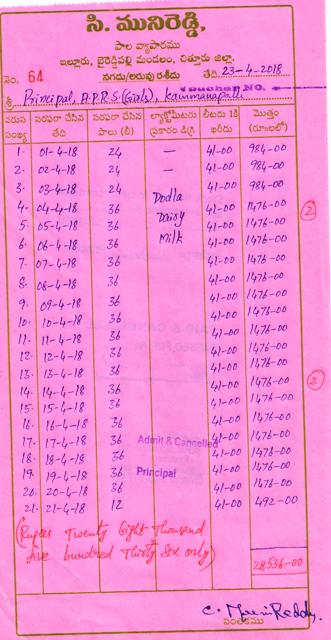 సి. మునిరెడ్డి,
పాల వ్యాపారము
ఇల్లూరు, బైరెడ్డిపల్లి మండలం, చిత్తూరు జిల్లా.
నెం. 64 నగదు/అరువు రశీదు తేది. 23-4-2018
VOUCHER NO.
శ్రీ Principal, A.P.R.S (Girls), Kammanapalli
వరుస సంఖ్య సరఫరా చేసిన తేది సరఫరా చేసిన పాలు (లీ) లాక్టోమీటరు ప్రకారం డిగ్రీ లీటరు 1కి ఖరీదు మొత్తం (రూ॥లలో)
1. 01-4-18 24 — 41-00 984-00
2. 02-4-18 24 — 41-00 984-00
3. 03-4-18 24 — 41-00 984-00
4. 04-4-18 36 Dodla 41-00 1476-00
5. 05-4-18 36 Dairy 41-00 1476-00
6. 06-4-18 36 Milk 41-00 1476-00
7. 07-4-18 36 41-00 1476-00
8. 08-4-18 36 41-00 1476-00
9. 09-4-18 36 41-00 1476-00
10. 10-4-18 36 41-00 1476-00
11. 11-4-18 36 41-00 1476-00
12. 12-4-18 36 41-00 1476-00
13. 13-4-18 36 41-00 1476-00
14. 14-4-18 36 41-00 1476-00
15. 15-4-18 36 41-00 1476-00
16. 16-4-18 36 41-00 1476-00
17. 17-4-18 36 41-00 1476-00
18. 18-4-18 36 41-00 1476-00
19. 19-4-18 36 41-00 1476-00
20. 20-4-18 36 41-00 1476-00
21. 21-4-18 12 41-00 492-00
2
2
Admit & Cancelled
Principal
(Rupees Twenty Eight Thousand
five hundred Thirty Six only)
28536-00
C. Muni Reddy.
సంతకము